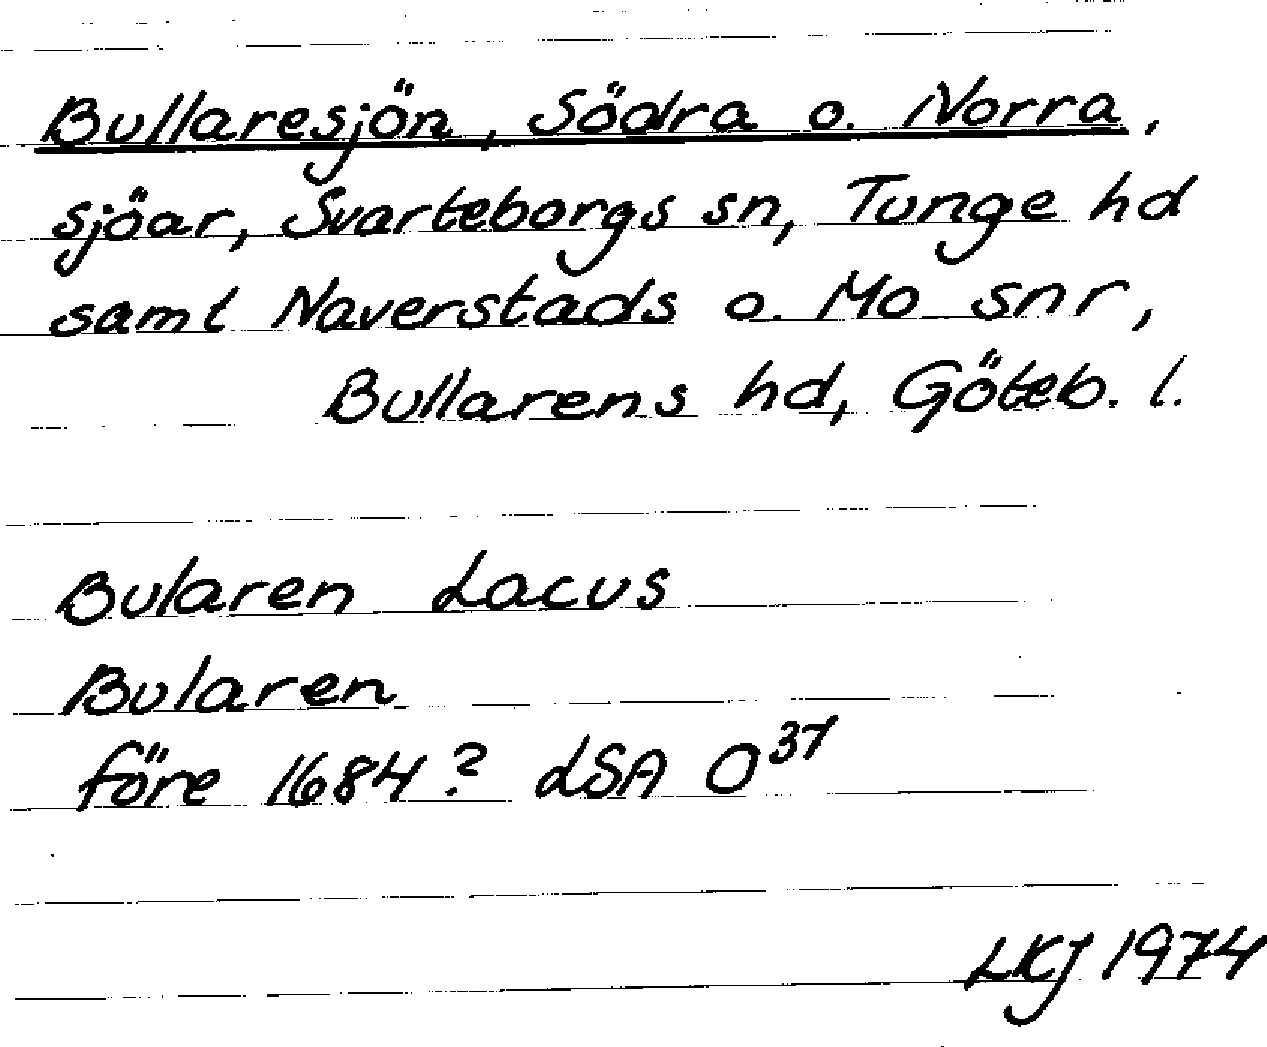 Bullaresjön, Södra o. Norra,
sjöar, Svarteborgs sn, Tunge hd
samt Naverstads o. Mo snr,
Bullarens hd, Göteb. l.
Bularen Lacus
Bularen
före 1684? LSA O³⁷
LKJ 1974